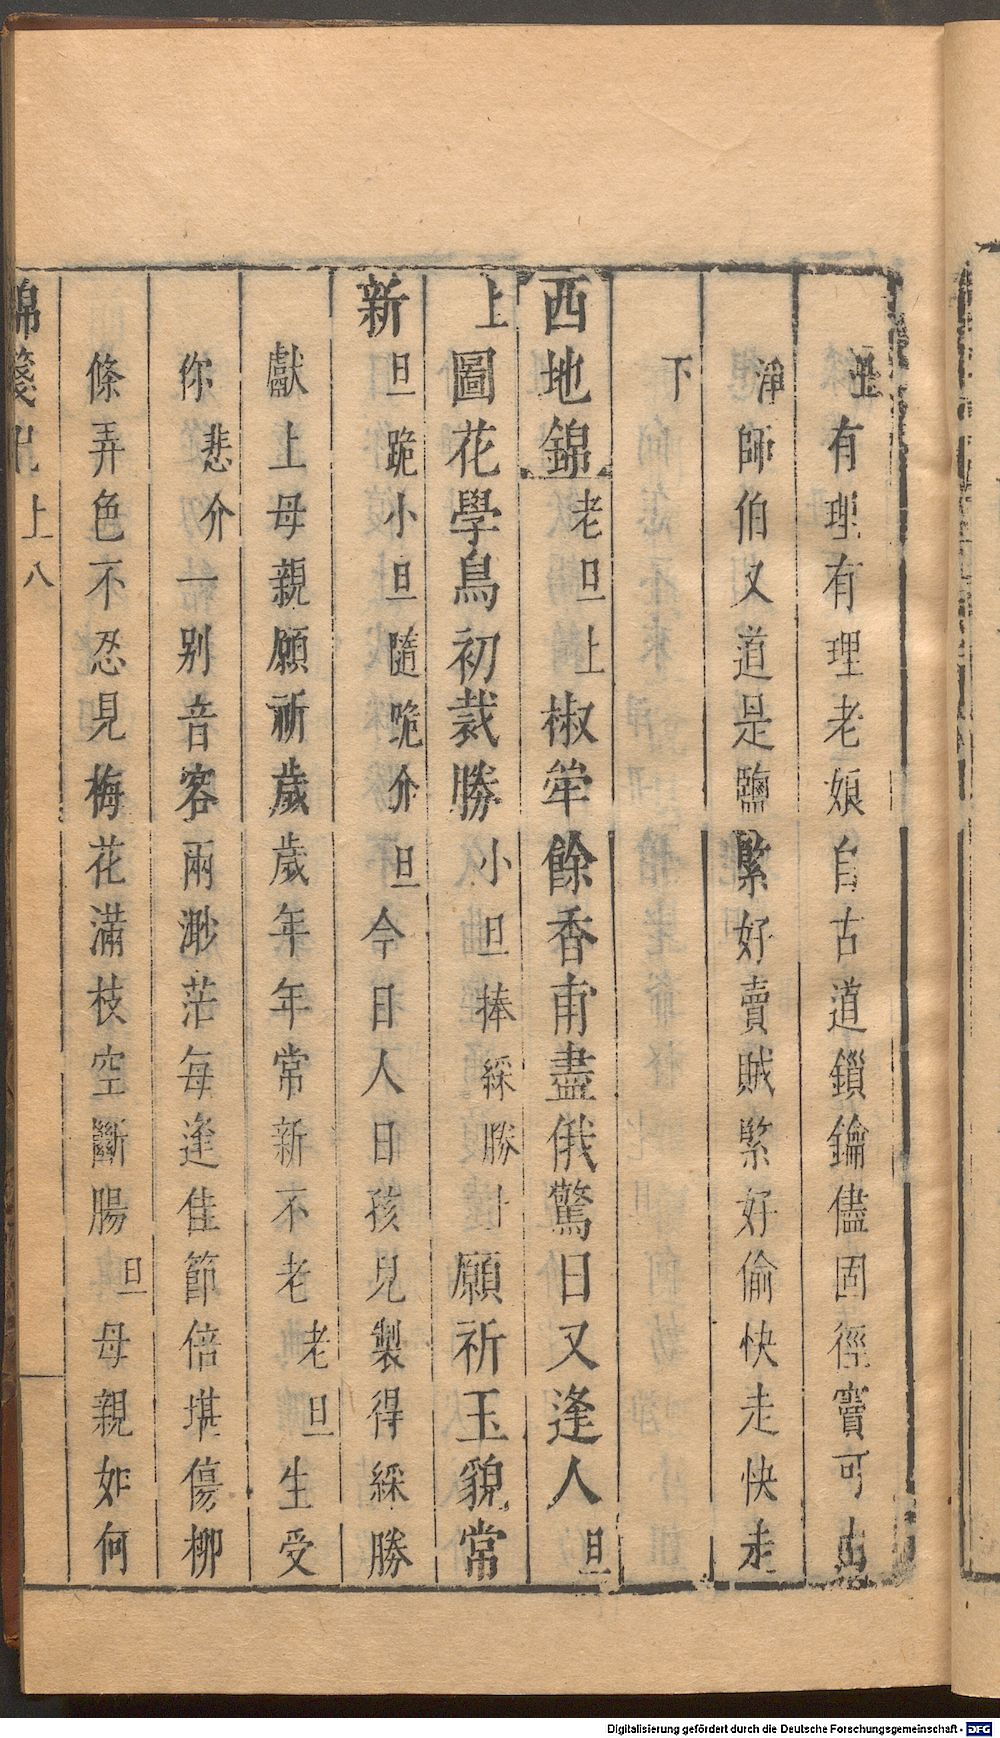 丑有理有理老娘自古道鎖鑰儘固徑竇可由
淨師伯又道是鹽緊好賣賊緊好偷快走快走
下
西地錦老旦上椒犖餘香甫盡俄驚日又逢人旦
上圖花學鳥初裁勝小旦捧綵勝上願祈玉貌常
新旦跪小旦隨跪介旦今日人日孩兒製得綵勝
獻上母親願祈歲歲年年常新不老老旦生受
你悲介一别音容兩渺茫每逢佳節倍堪傷柳
條弄色不忍見梅花滿枝空斷腸旦母親如何
錦箋記 上 八
Digitalisierung gefördert durch die Deutsche Forschungsgemeinschaft - DFG